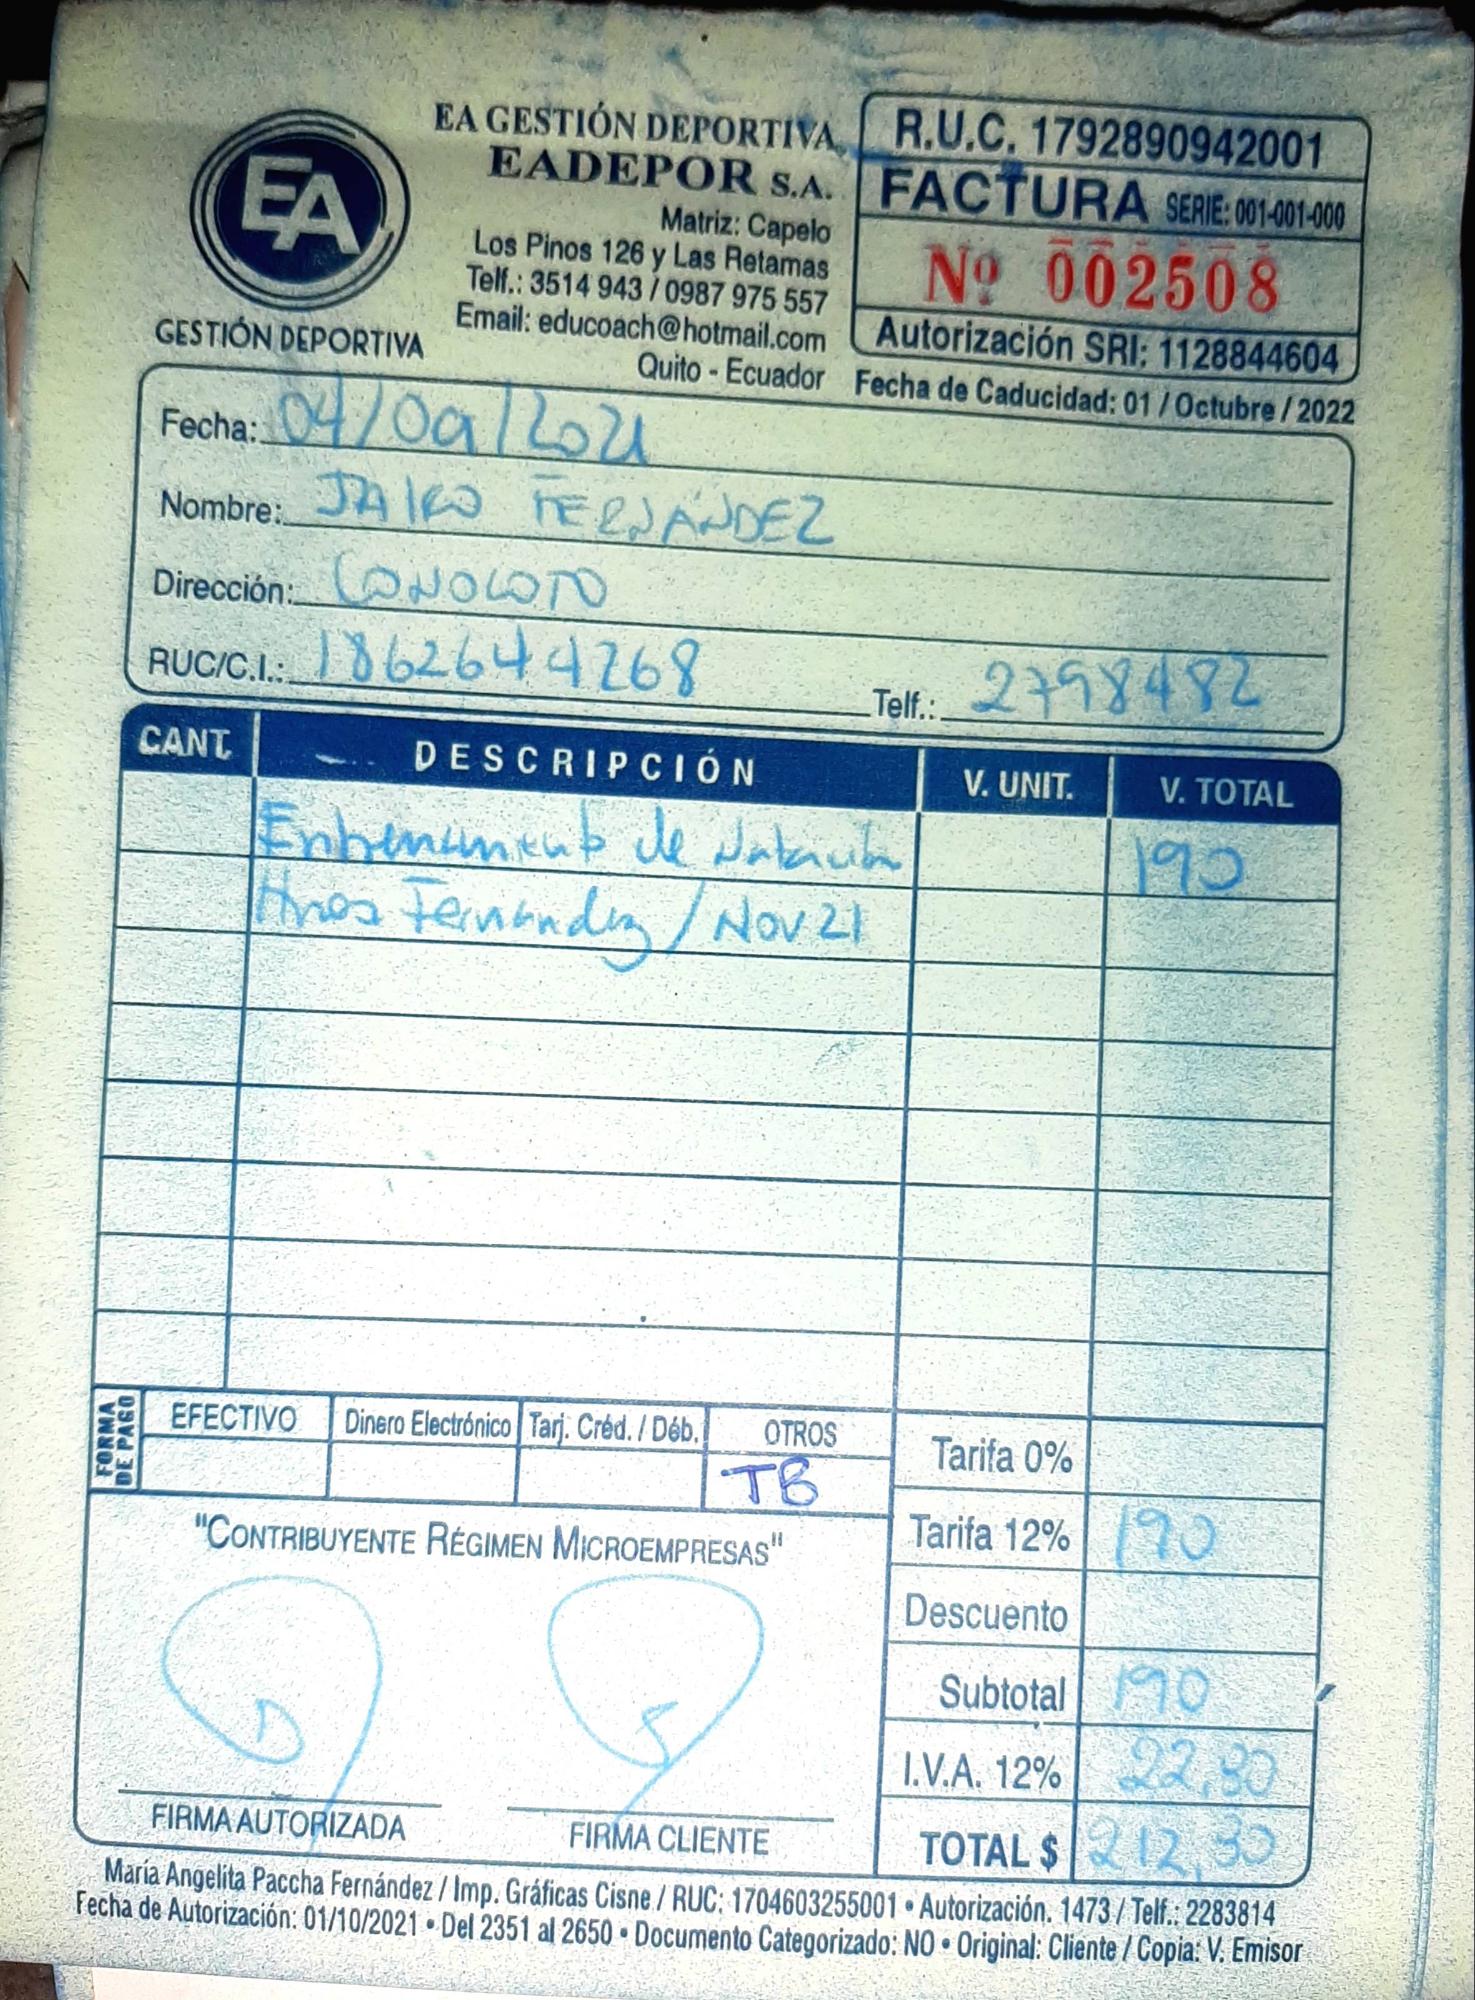 EA
GESTIÓN DEPORTIVA
EA GESTIÓN DEPORTIVA
EADEPOR S.A.
Matriz: Capelo
Los Pinos 126 y Las Retamas
Telf.: 3514 943 / 0987 975 557
Email: educoach@hotmail.com
Quito - Ecuador
R.U.C. 1792890942001
FACTURA SERIE: 001-001-000
Nº 002508
Autorización SRI: 1128844604
Fecha de Caducidad: 01 / Octubre / 2022
Fecha: 04/09/2021
Nombre: JAIRO FERNÁNDEZ
Dirección: CONOCOTO
RUC/C.I.: 1862644268 Telf.: 2798482
CANT. DESCRIPCIÓN V. UNIT. V. TOTAL
Entrenamiento de Natación 190
Hnos Fernández / Nov 21
FORMA DE PAGO
EFECTIVO Dinero Electrónico Tarj. Créd. / Déb. OTROS
TB
Tarifa 0%
Tarifa 12% 190
Descuento
Subtotal 190
I.V.A. 12% 22,80
TOTAL $ 212,80
"CONTRIBUYENTE RÉGIMEN MICROEMPRESAS"
FIRMA AUTORIZADA FIRMA CLIENTE
María Angelita Paccha Fernández / Imp. Gráficas Cisne / RUC: 1704603255001 • Autorización. 1473 / Telf.: 2283814
Fecha de Autorización: 01/10/2021 • Del 2351 al 2650 • Documento Categorizado: NO • Original: Cliente / Copia: V. Emisor